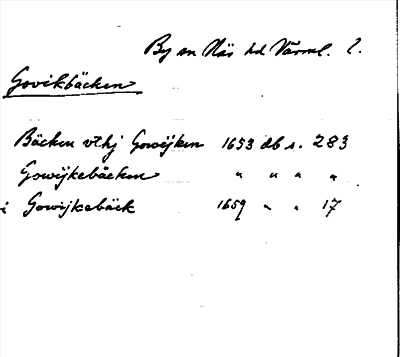 By sn Näs hd Värml. l.
Govikbäcken
Bäcken vthj Gowijken 1653 db s. 283
Gowijkebäcken " " " "
i Gowijkebäck 1659 " " 17